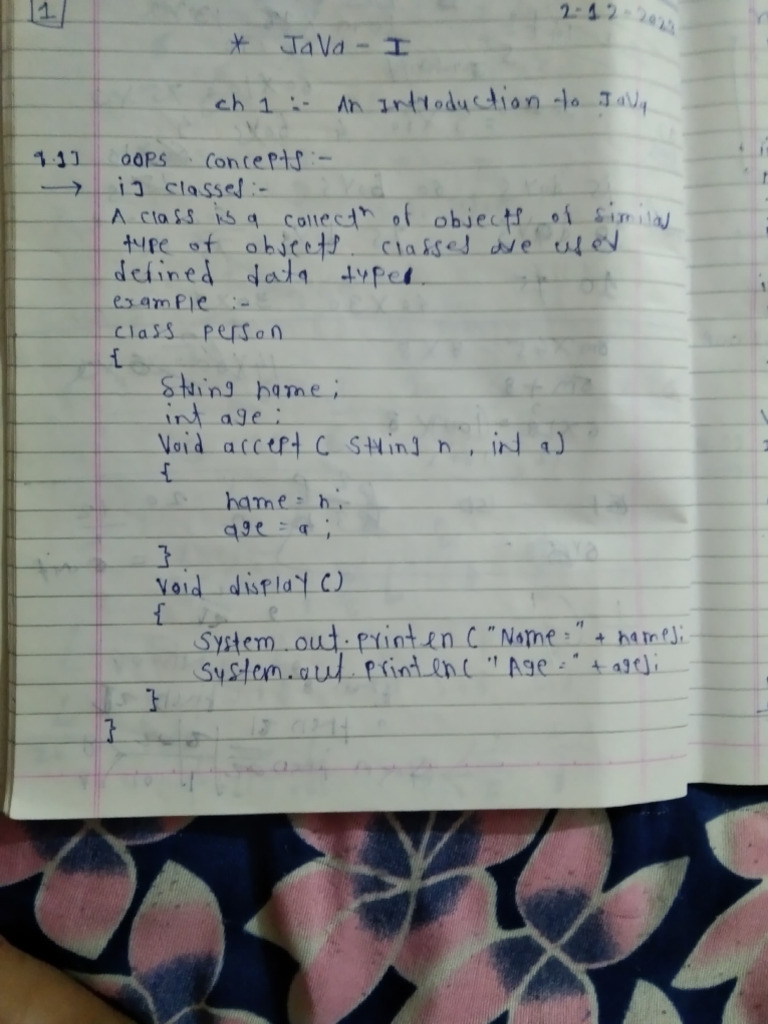 1
2-12-2023
* JaVa - I
ch 1 :- An Introduction to JaVa
1.1] OOPS concepts :-
→ i] classes :-
A class is a collectⁿ of objects of similar
type of objects. classes are used
defined data types.
example :-
class person
{
String name ;
int age ;
Void accept ( String n , int a)
{
name = n ;
age = a ;
}
Void display ()
{
System.out.printen ("Name =" + name);
System.out.printen ("Age =" + age);
}
}